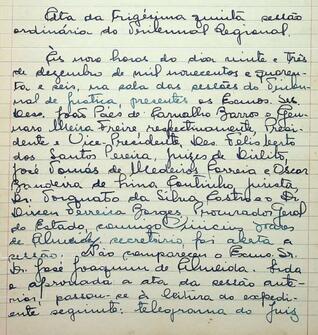 Ata da Trigésima quinta sessão
ordinária do Tribunal Regional.
Às nove horas do dia vinte e três
de dezembro de mil novecentos e quaren-
ta e seis, na sala das sessões do Tribu-
nal de Justiça, presentes os Exmos. Srs.
Des. João Paes de Carvalho Barros e Gen-
naro Meira Freire respectivamente, Presi-
dente e Vice Presidente, Des. Felisberto
dos Santos Pereira, juizes de Direito,
José Tomás de Medeiros Correia e Oscar
Bandeira de Lima Coutinho, jurista,
Dr. Torquato da Silva Castro e o Dr.
Dirceu Ferreira Borges, Procurador Geral
do Estado, comigo
de Almeida, secretário, foi aberta a
sessão. Não compareceu o Exmo. Sr.
Dr. José Joaquim de Almeida. Lida
e aprovada a ata da sessão ante-
rior, passou-se à leitura do expedi-
ente seguinte: telegrama do juis